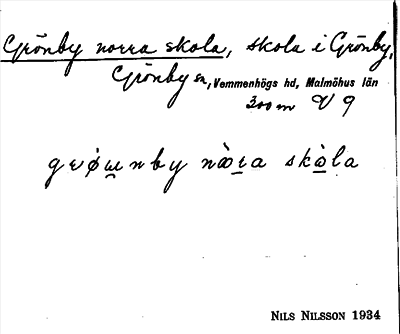 Grönby norra skola, skola i Grönby,
Grönby sn, Vemmenhögs hd, Malmöhus län
300 m V 9
gvǿɯ̲nby nò̲r̲a skò̲la
NILS NILSSON 1934